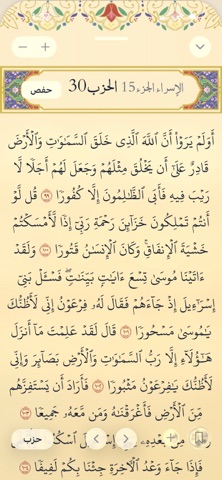 الإسراء الجزء١٥ الحزب30 حفص
أَوَلَمْ يَرَوْا۟ أَنَّ ٱللَّهَ ٱلَّذِى خَلَقَ ٱلسَّمَٰوَٰتِ وَٱلْأَرْضَ
قَادِرٌ عَلَىٰٓ أَن يَخْلُقَ مِثْلَهُمْ وَجَعَلَ لَهُمْ أَجَلًا لَّا
رَيْبَ فِيهِ فَأَبَى ٱلظَّٰلِمُونَ إِلَّا كُفُورًا ٩٩ قُل لَّوْ
أَنتُمْ تَمْلِكُونَ خَزَآئِنَ رَحْمَةِ رَبِّىٓ إِذًا لَّأَمْسَكْتُمْ
خَشْيَةَ ٱلْإِنفَاقِ وَكَانَ ٱلْإِنسَٰنُ قَتُورًا ١٠٠ وَلَقَدْ
ءَاتَيْنَا مُوسَىٰ تِسْعَ ءَايَٰتٍۭ بَيِّنَٰتٍ فَسْـَٔلْ بَنِىٓ
إِسْرَٰٓءِيلَ إِذْ جَآءَهُمْ فَقَالَ لَهُۥ فِرْعَوْنُ إِنِّى لَأَظُنُّكَ
يَٰمُوسَىٰ مَسْحُورًا ١٠١ قَالَ لَقَدْ عَلِمْتَ مَآ أَنزَلَ
هَٰٓؤُلَآءِ إِلَّا رَبُّ ٱلسَّمَٰوَٰتِ وَٱلْأَرْضِ بَصَآئِرَ وَإِنِّى
لَأَظُنُّكَ يَٰفِرْعَوْنُ مَثْبُورًا ١٠٢ فَأَرَادَ أَن يَسْتَفِزَّهُم
مِّنَ ٱلْأَرْضِ فَأَغْرَقْنَٰهُ وَمَن مَّعَهُۥ جَمِيعًا ١٠٣
بَعْدِهِۦ لِبَنِىٓ إِسْرَٰٓءِيلَ ٱسْكُنُوا۟
حزب
فَإِذَا جَآءَ وَعْدُ ٱلْءَاخِرَةِ جِئْنَا بِكُمْ لَفِيفًا